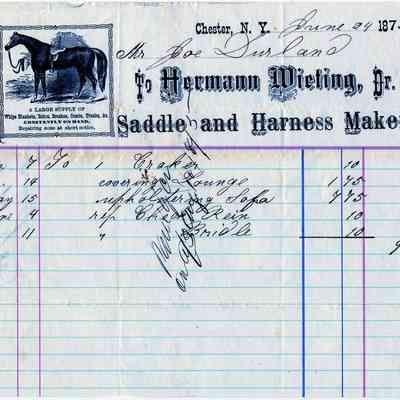 Chester, N. Y. June 24 187
Mr Joe Durland
To Hermann Wieting, Dr.
A LARGE SUPPLY OF
Whips Blankets, Robes, Brushes, Combs, Trunks, &c.
CONSTANTLY ON HAND.
Repairing done at short notice.
Saddle and Harness Make
7 To 1 Craker 10
14 covering Lounge 1 75
15 upholstering Sofa 7 75
4 rep Check Rein 10
11 " Bridle 10
9